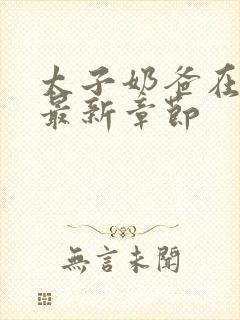 太子奶爸在
最新章节
無言未聞